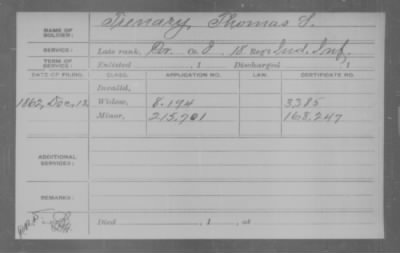 NAME OF SOLDIER: Trenary, Thomas S.
SERVICE: Late rank, Pri. Co. I, 18 Reg't Ind. Inf.
TERM OF SERVICE: Enlisted , 1 Discharged , 1
DATE OF FILING. CLASS. APPLICATION NO. LAW. CERTIFICATE NO.
Invalid,
1862, Dec. 12 Widow, 8.194 3,385
Minor, 215,701 168,247
ADDITIONAL SERVICES:
REMARKS:
Died , 1 , at